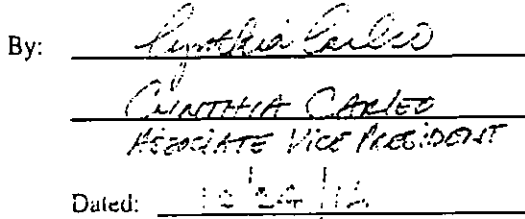 By: Cynthia Carleo
CYNTHIA CARLEO
ASSOCIATE VICE PRESIDENT
Dated: 10/24/